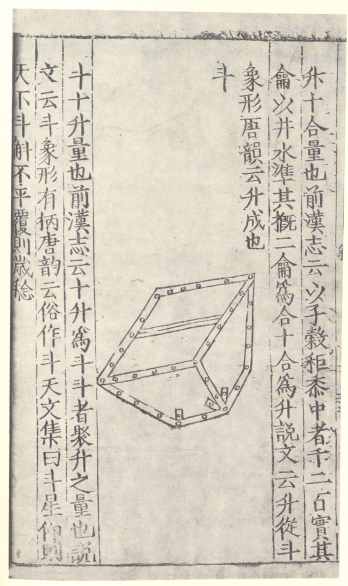 升十合量也前漢志云以子穀秬黍中者千二百實其
龠以井水準其概二龠爲合十合爲升說文云升從斗
象形唐韻云升成也
斗
斗十升量也前漢志云十升爲斗斗者聚升之量也說
文云斗象形有柄唐韵云俗作斗天文集曰斗星仰則
天下斗斛不平覆則歲稔